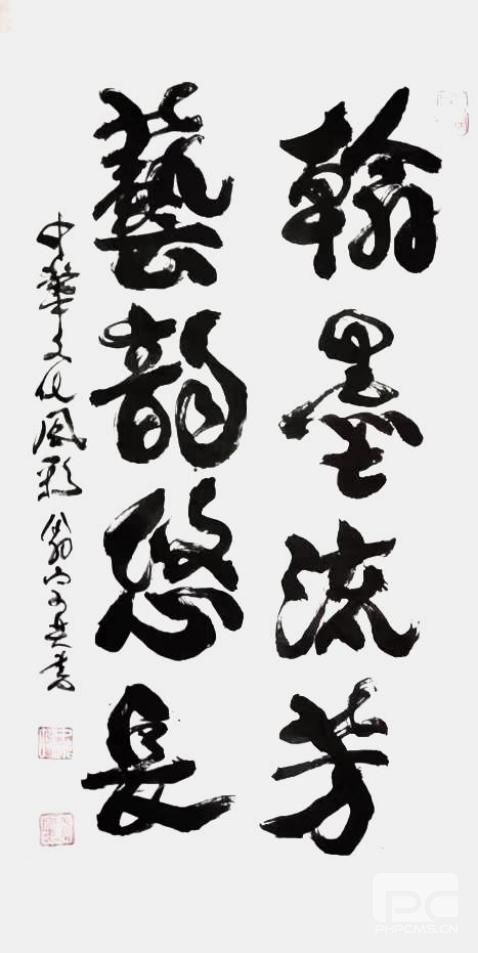 翰墨流芳
藝韵悠長
中華文化風彩
PHPCMS.CN